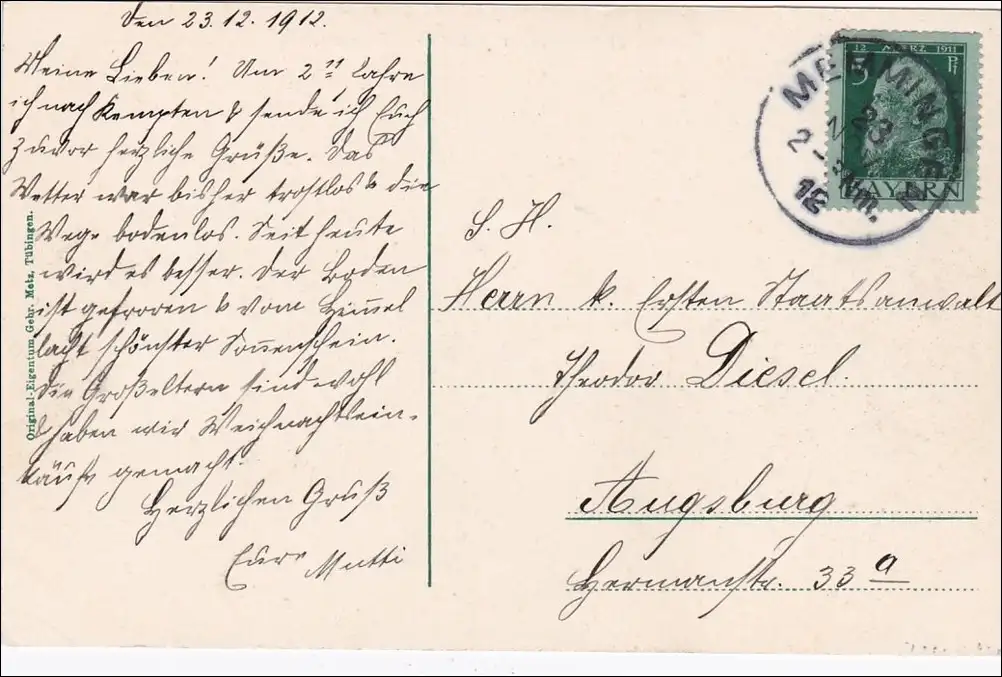 Den 23.12.1912.
Meine Lieben! Um 2 11 fahre
ich nach Kempten & sende ich Euch
zuvor herzliche Grüße. Das
Wetter war bisher trostlos & die
Wege bodenlos. Seit heute
wird es besser. Der Boden
ist gefroren & vom Himmel
lacht schönster Sonnenschein.
Die Großeltern sind wohl
& haben wir Weihnachtsein-
käufe gemacht.
Herzlichen Gruß
Eure Mutti
Original-Eigentum Gebr. Metz, Tübingen.
12 MÄRZ 1911
5 Pf
BAYERN
MEMMINGEN
23
2-3 Nm.
12
S. H.
Herrn k. Ersten Staatsanwalt
Theodor Diesel.
Augsburg
Hermanstr. 33 a